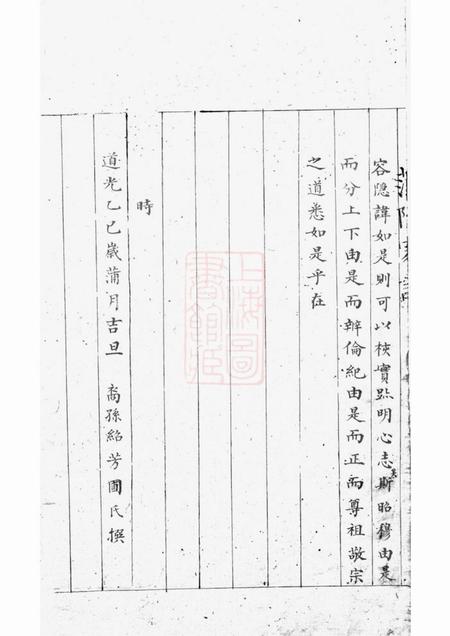 容隱諱如是則可以核實跡明心志矣斯昭穆由是
而分上下由是而辨倫紀由是而正而尊祖敬宗
之道悉如是乎在
時
道光乙巳歲蒲月吉旦 裔孫紹芳圃氏撰
上海圖書館藏